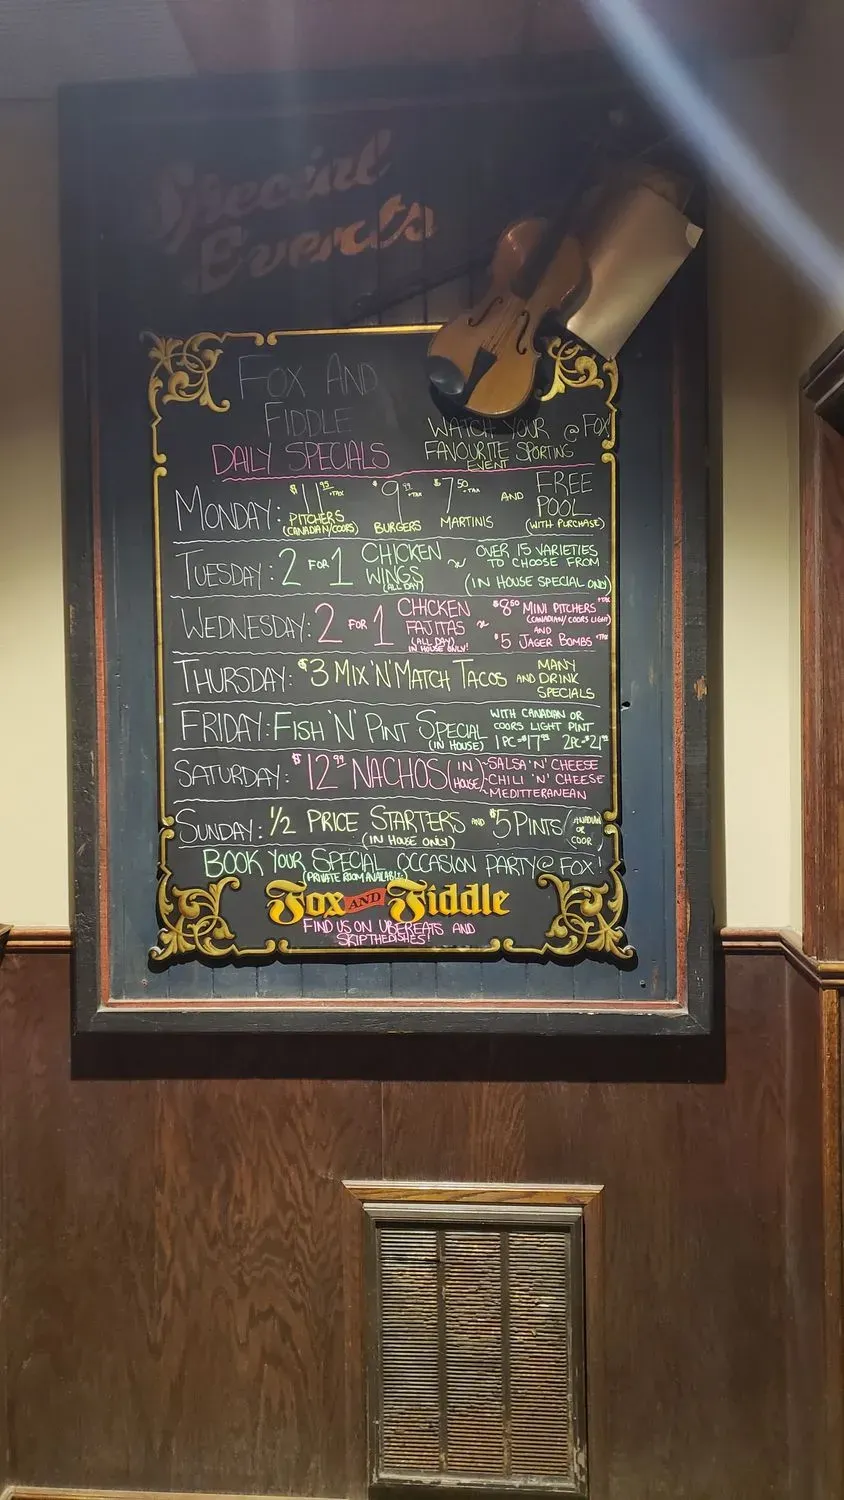 Special
Events
FOX AND
FIDDLE
DAILY SPECIALS
WATCH YOUR @ FOX
FAVOURITE SPORTING
EVENT
MONDAY: $11.99 +TAX PITCHERS (CANADIAN/COORS) $9.99 +TAX BURGERS $7.50 +TAX MARTINIS AND FREE POOL (WITH PURCHASE)
TUESDAY: 2 FOR 1 CHICKEN WINGS (ALL DAY) ~ OVER 15 VARIETIES TO CHOOSE FROM (IN HOUSE SPECIAL ONLY)
WEDNESDAY: 2 FOR 1 CHICKEN FAJITAS (ALL DAY) IN HOUSE ONLY! ~ $8.50 MINI PITCHERS +TAX (CANADIAN/COORS LIGHT) AND $5 JAGER BOMBS +TAX
THURSDAY: $3 MIX 'N' MATCH TACOS AND MANY DRINK SPECIALS
FRIDAY: FISH 'N' PINT SPECIAL (IN HOUSE) WITH CANADIAN OR COORS LIGHT PINT 1PC-$17 2PC-$21
SATURDAY: $12.99 NACHOS (IN HOUSE) -SALSA 'N' CHEESE -CHILI 'N' CHEESE -MEDITTERANEAN
SUNDAY: 1/2 PRICE STARTERS (IN HOUSE ONLY) AND $5 PINTS (CANADIAN OR COOR
BOOK YOUR SPECIAL OCCASION PARTY @ FOX!
(PRIVATE ROOM AVAILABLE)
Fox AND Fiddle
FIND US ON UBEREATS AND
SKIPTHEDISHES!